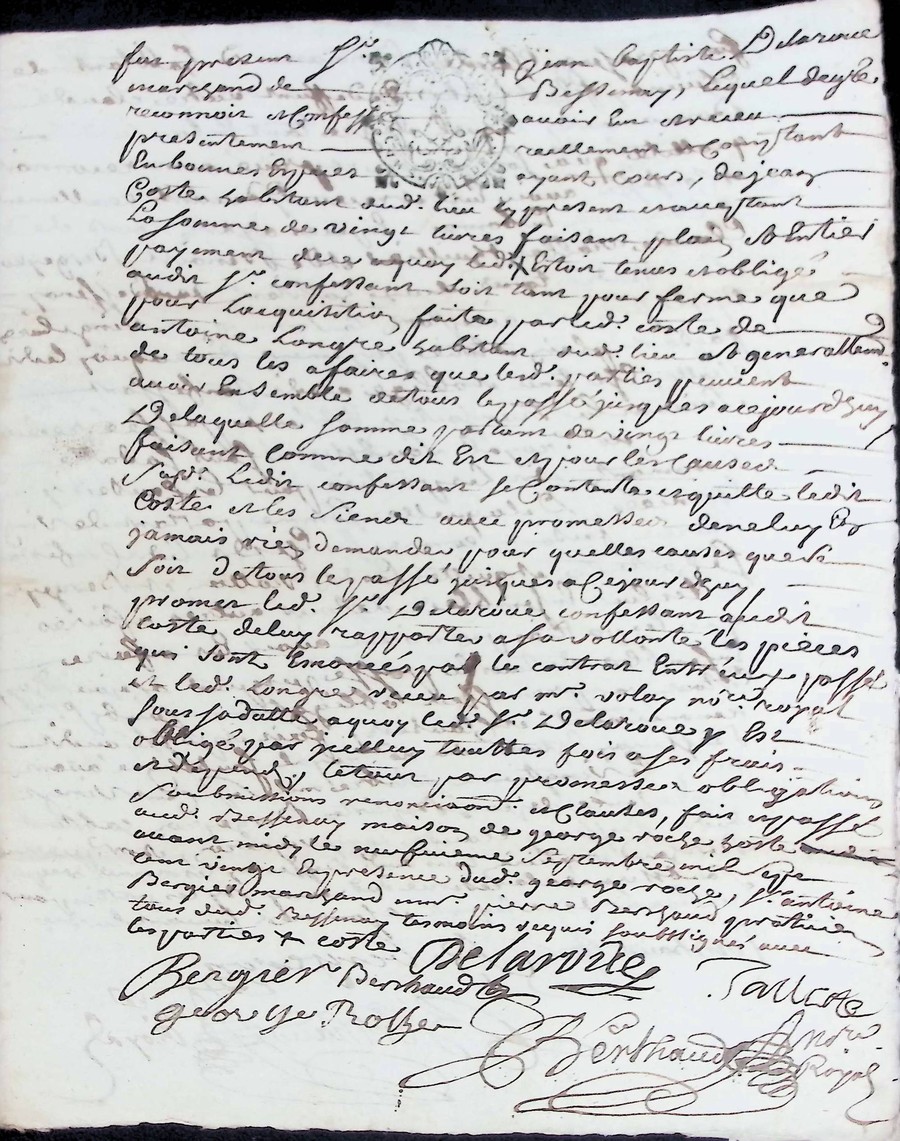 fut present Sr. jean baptiste Delaroue
marchand de Bessenay, lequel de gré
reconnoit et Confesse avoir Eu et receu
presentement reellement Comptant
En bonnes Especes ayant cours, de jean
Coste habitant dud. lieu cy present et acceptant
La somme de vingt livres faisant plain et Entier
payement de ce a quoy led. X Estoit tenus et obligé
audit Sr. confessant soit tant pour ferme que
pour Lacquisition faite par led. coste de
antoine Longre habitant dud. lieu et generallemt.
de tous les afaires que lesd. parties peuvent
avoir Ensemble de tous le passé jusques a ce jourdhuy
De laquelle somme partant de vingt livres
faisant Comme dit Est et pour les Causes
Susd. Ledit confessant se Contente et quitte ledit
Coste et les Siens avec promesse de ne luy En
jamais rien demander pour quelles causes que ce
Soit de tous le passé jusques a Ce jourdhuy
promet led. Sr. Delaroue confessant audit
Coste de luy rapporter a sa vollonté les pieces
qui sont Enoncés par le contrat Entreux passé
et led. Longre receu par mr. notre royal
Sous sa datte a quoy led. Sr. Delaroue y Est
obligé par jcelluy touttes fois a ses frais
et depends, le tout par promesses obligations
Soubmissions renonciaons. et Clauses, fait et passé
aud. Bessenay maison de george roche hoste
avant midy le neufvieme Septembre mil sept
cent vingt En presence dud. george roche, Sr. antoine
Bergier marchand pierre Berthaud praticien
tous dud. Bessenay tesmoins requis soubssignés avec
les parties + coste
Delaroue
Bergier Berthaud
george Roche
Berthaud
Royal